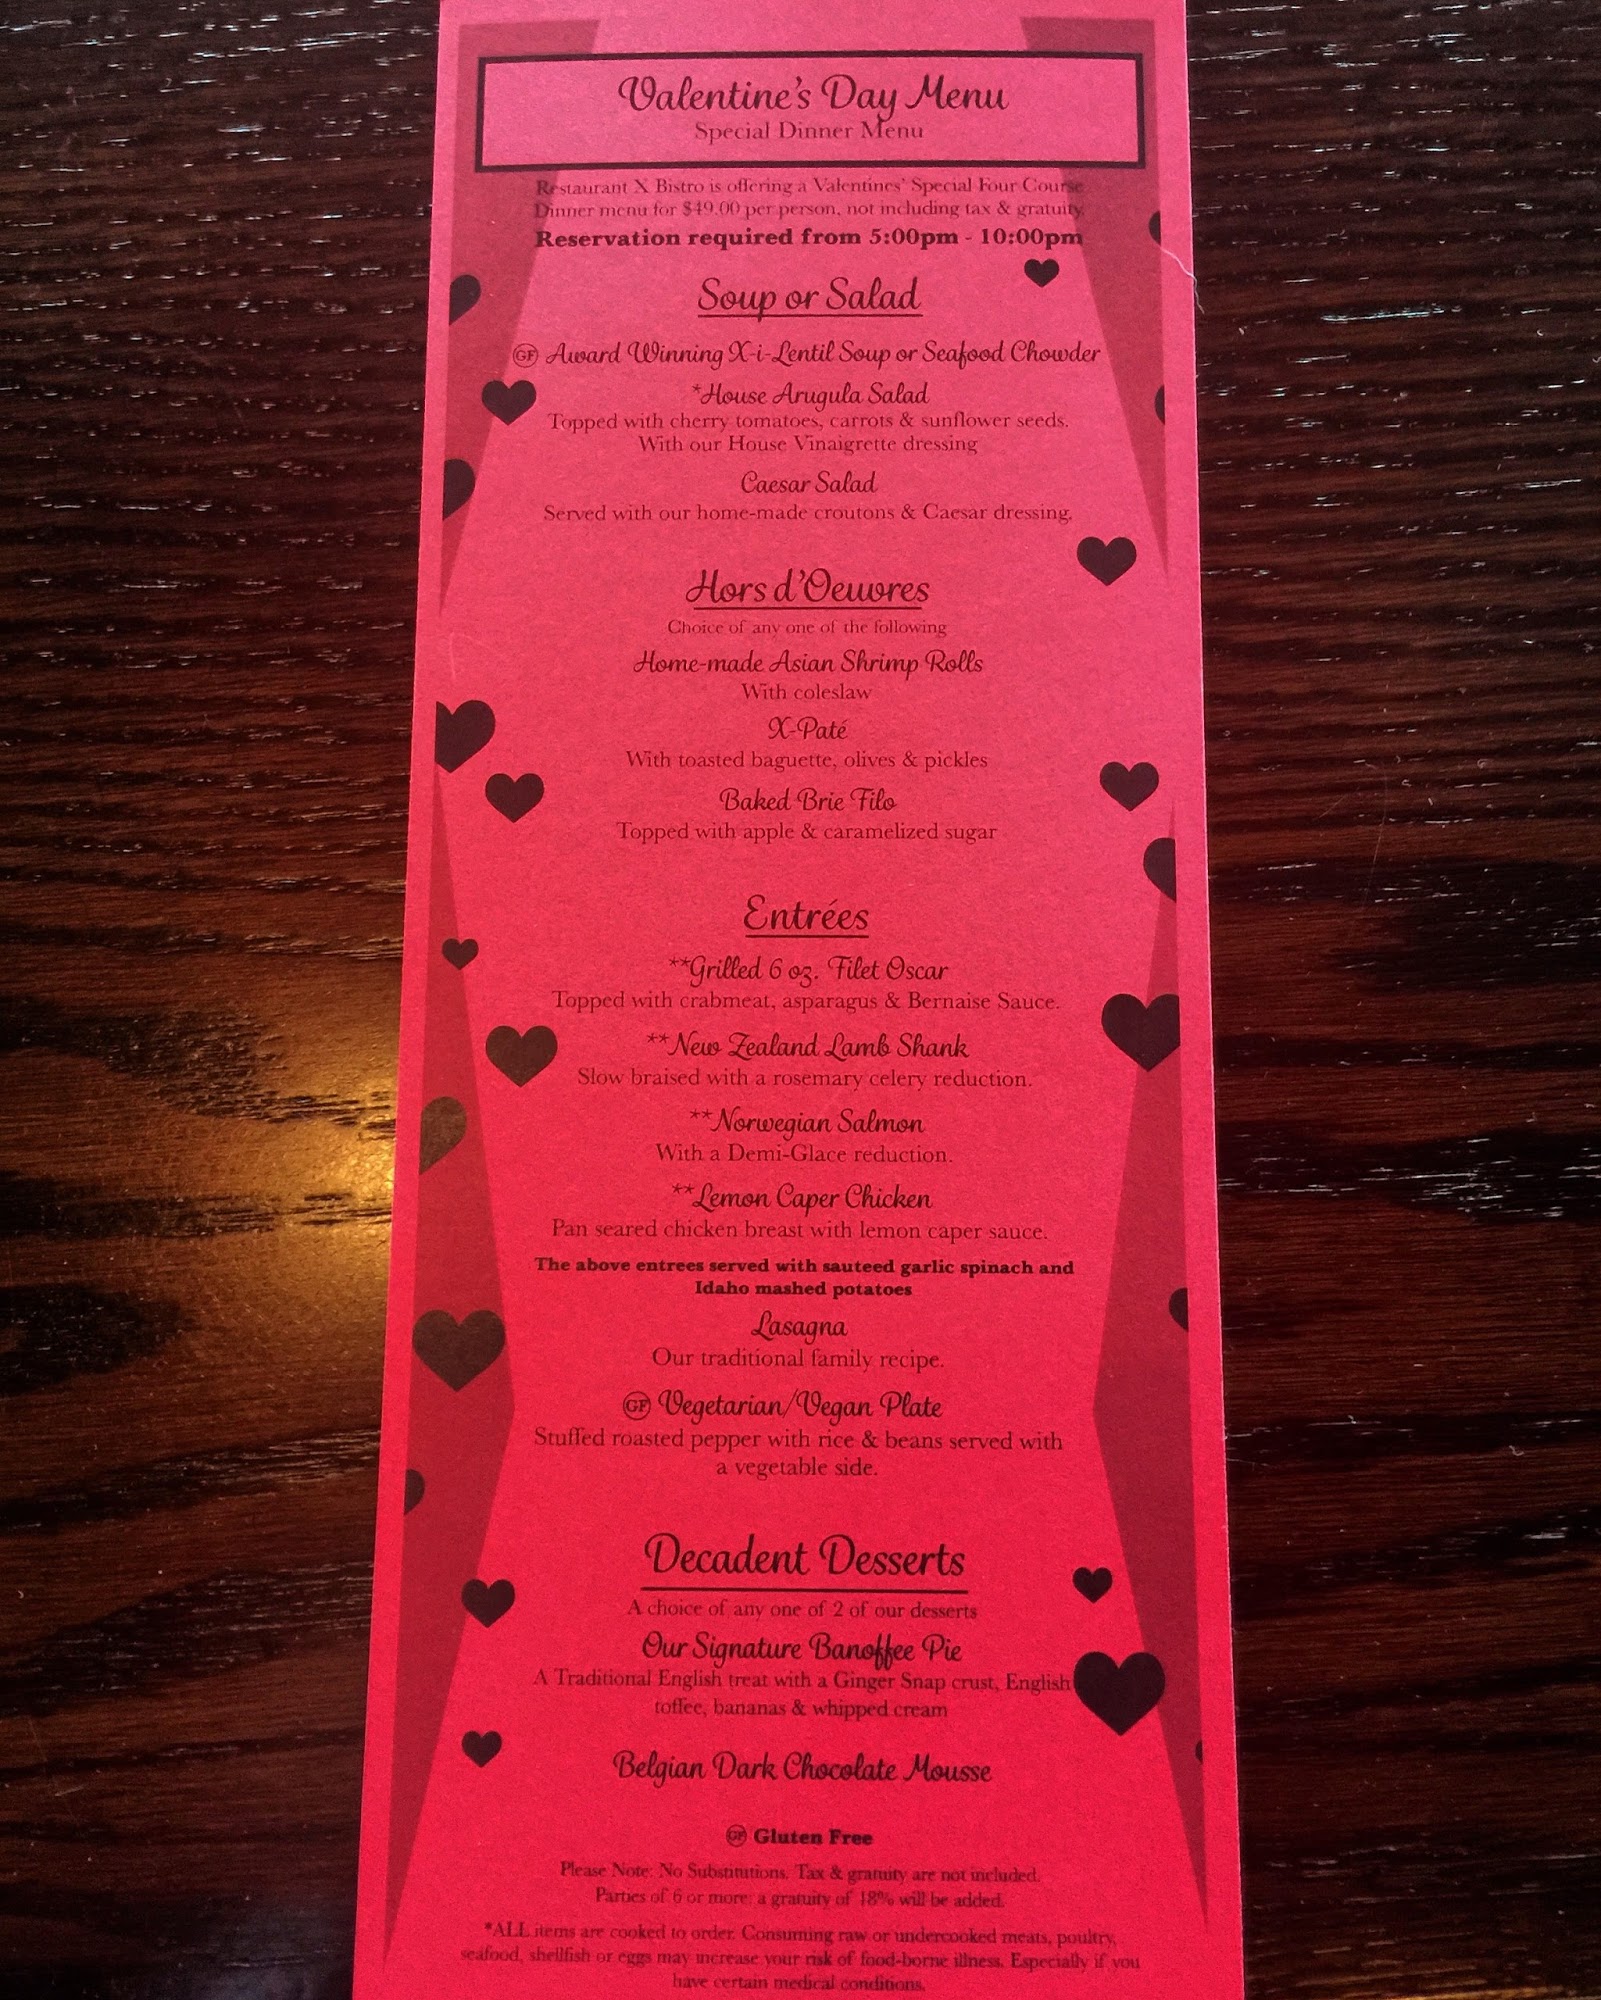 Valentine's Day Menu
Special Dinner Menu
Restaurant X Bistro is offering a Valentines' Special Four Course
Dinner menu for $49.00 per person, not including tax & gratuity.
Reservation required from 5:00pm - 10:00pm
Soup or Salad
GF Award Winning X-i-Lentil Soup or Seafood Chowder
*House Arugula Salad
Topped with cherry tomatoes, carrots & sunflower seeds.
With our House Vinaigrette dressing
Caesar Salad
Served with our home-made croutons & Caesar dressing.
Hors d'Oeuvres
Choice of any one of the following
Home-made Asian Shrimp Rolls
With coleslaw
X-Paté
With toasted baguette, olives & pickles
Baked Brie Filo
Topped with apple & caramelized sugar
Entrées
**Grilled 6 oz. Filet Oscar
Topped with crabmeat, asparagus & Bernaise Sauce.
**New Zealand Lamb Shank
Slow braised with a rosemary celery reduction.
**Norwegian Salmon
With a Demi-Glace reduction.
**Lemon Caper Chicken
Pan seared chicken breast with lemon caper sauce.
The above entrees served with sauteed garlic spinach and
Idaho mashed potatoes
Lasagna
Our traditional family recipe.
GF Vegetarian/Vegan Plate
Stuffed roasted pepper with rice & beans served with
a vegetable side.
Decadent Desserts
A choice of any one of 2 of our desserts
Our Signature Banoffee Pie
A Traditional English treat with a Ginger Snap crust, English
toffee, bananas & whipped cream
Belgian Dark Chocolate Mousse
GF Gluten Free
Please Note: No Substitutions. Tax & gratuity are not included.
Parties of 6 or more: a gratuity of 18% will be added.
*ALL items are cooked to order. Consuming raw or undercooked meats, poultry,
seafood, shellfish or eggs may increase your risk of food-borne illness. Especially if you
have certain medical conditions.